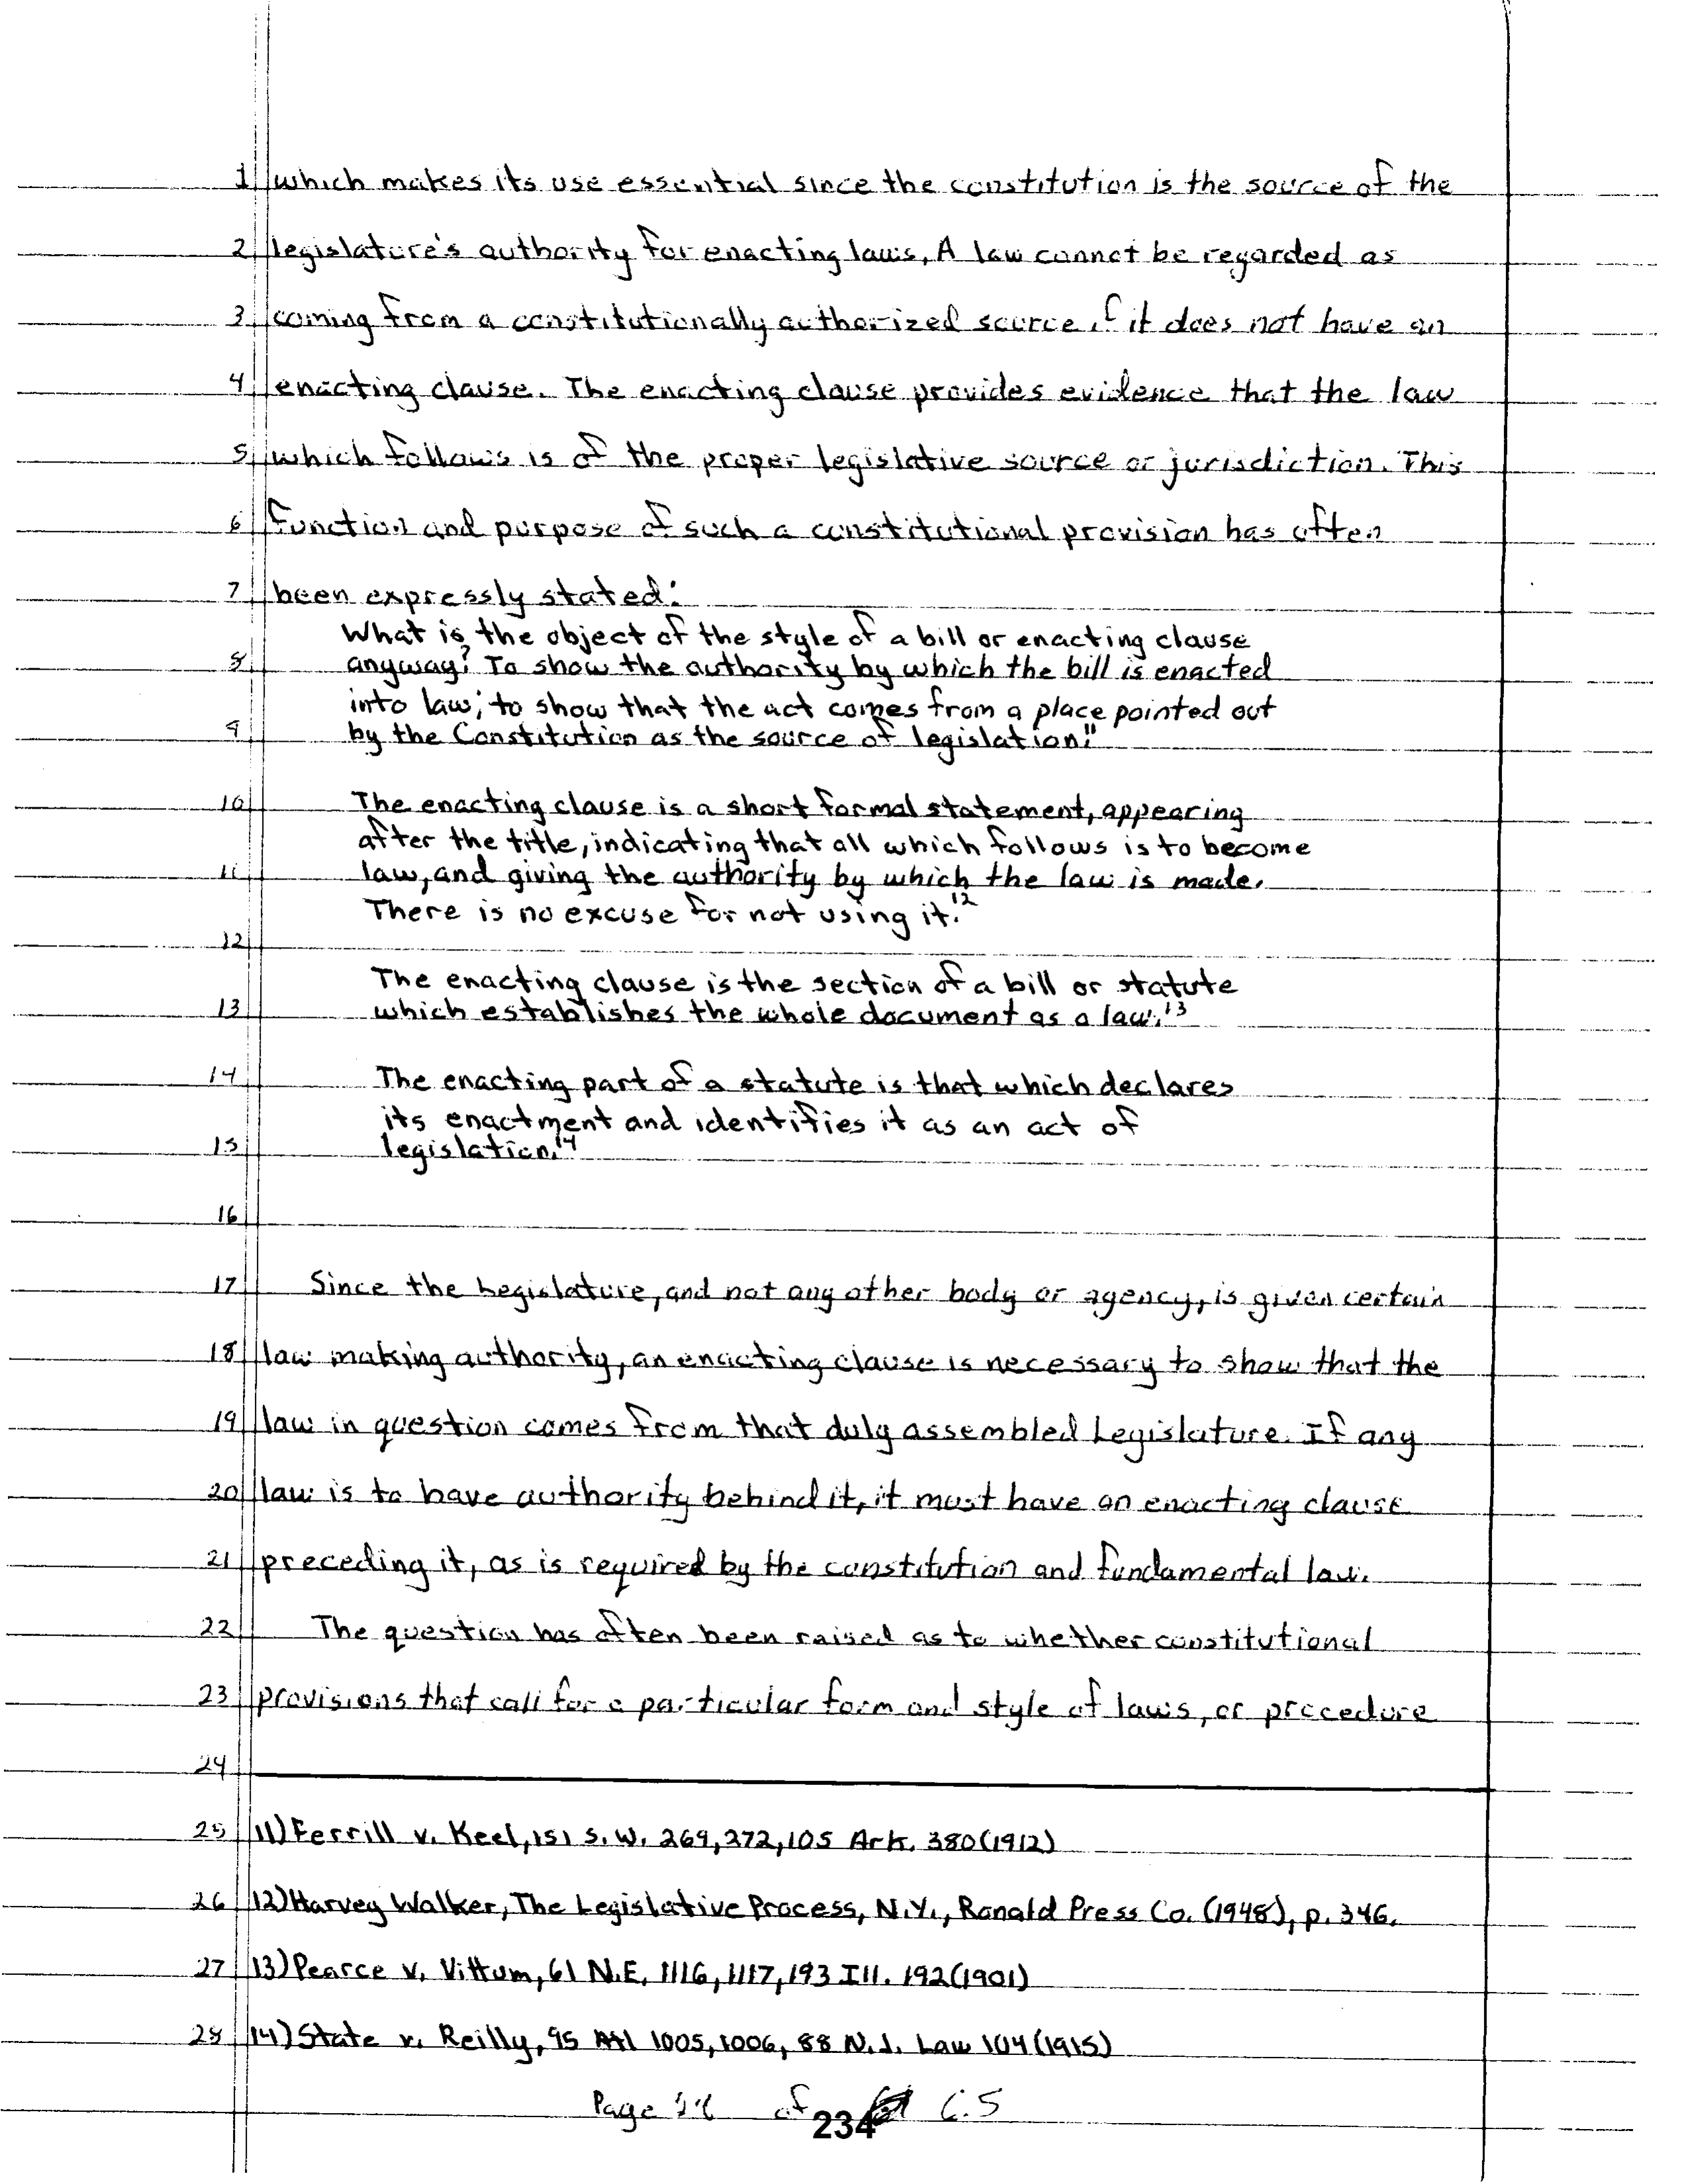 1 which makes its use essential since the constitution is the source of the
2 legislature's authority for enacting laws. A law cannot be regarded as
3 coming from a constitutionally authorized source if it does not have an
4 enacting clause. The enacting clause provides evidence that the law
5 which follows is of the proper legislative source or jurisdiction. This
6 function and purpose of such a constitutional provision has often
7 been expressly stated:
What is the object of the style of a bill or enacting clause
8 anyway? To show the authority by which the bill is enacted
into law; to show that the act comes from a place pointed out
9 by the Constitution as the source of legislation.11
10 The enacting clause is a short formal statement, appearing
after the title, indicating that all which follows is to become
11 law, and giving the authority by which the law is made.
There is no excuse for not using it.12
12
The enacting clause is the section of a bill or statute
13 which establishes the whole document as a law.13
14 The enacting part of a statute is that which declares
its enactment and identifies it as an act of
15 legislation.14
16
17 Since the Legislature, and not any other body or agency, is given certain
18 law making authority, an enacting clause is necessary to show that the
19 law in question comes from that duly assembled Legislature. If any
20 law is to have authority behind it, it must have an enacting clause
21 preceding it, as is required by the constitution and fundamental law.
22 The question has often been raised as to whether constitutional
23 provisions that call for a particular form and style of laws, or procedure
24
25 11) Ferrill v. Keel, 151 S.W. 269, 272, 105 Ark. 380 (1912)
26 12) Harvey Walker, The Legislative Process, N.Y., Ronald Press Co. (1948), p. 346.
27 13) Pearce v. Vittum, 61 N.E. 1116, 1117, 193 Ill. 192 (1901)
28 14) State v. Reilly, 95 Atl 1005, 1006, 88 N.J. Law 104 (1915)
Page of
234